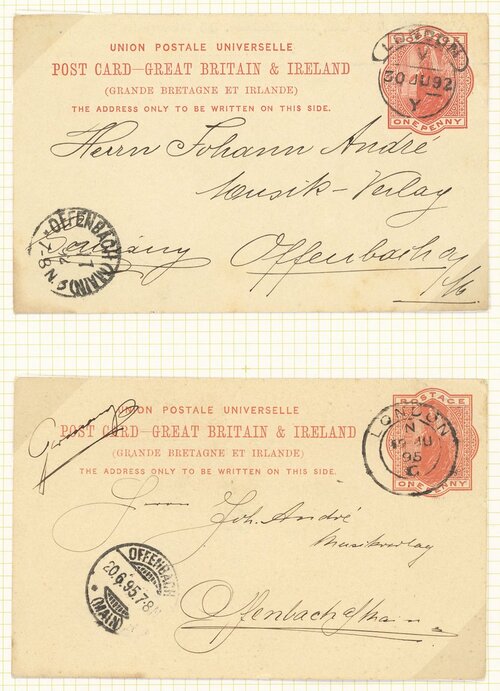 UNION POSTALE UNIVERSELLE
POST CARD—GREAT BRITAIN & IRELAND
(GRANDE BRETAGNE ET IRLANDE)
THE ADDRESS ONLY TO BE WRITTEN ON THIS SIDE.
LONDON
Y
30 JU 92
Y
ONE PENNY
Herrn Johann André
Musik-Verlag
Germany Offenbach a/
M
OFFENBACH
(MAIN)
7-8 N.
UNION POSTALE UNIVERSELLE
POST CARD—GREAT BRITAIN & IRELAND
(GRANDE BRETAGNE ET IRLANDE)
THE ADDRESS ONLY TO BE WRITTEN ON THIS SIDE.
Germany
POSTAGE
LONDON
N
JU
95
ONE PENNY
Joh. André
Musikverlag
Offenbach a/Main
OFFENBACH
20.6.95.7-8
(MAIN)